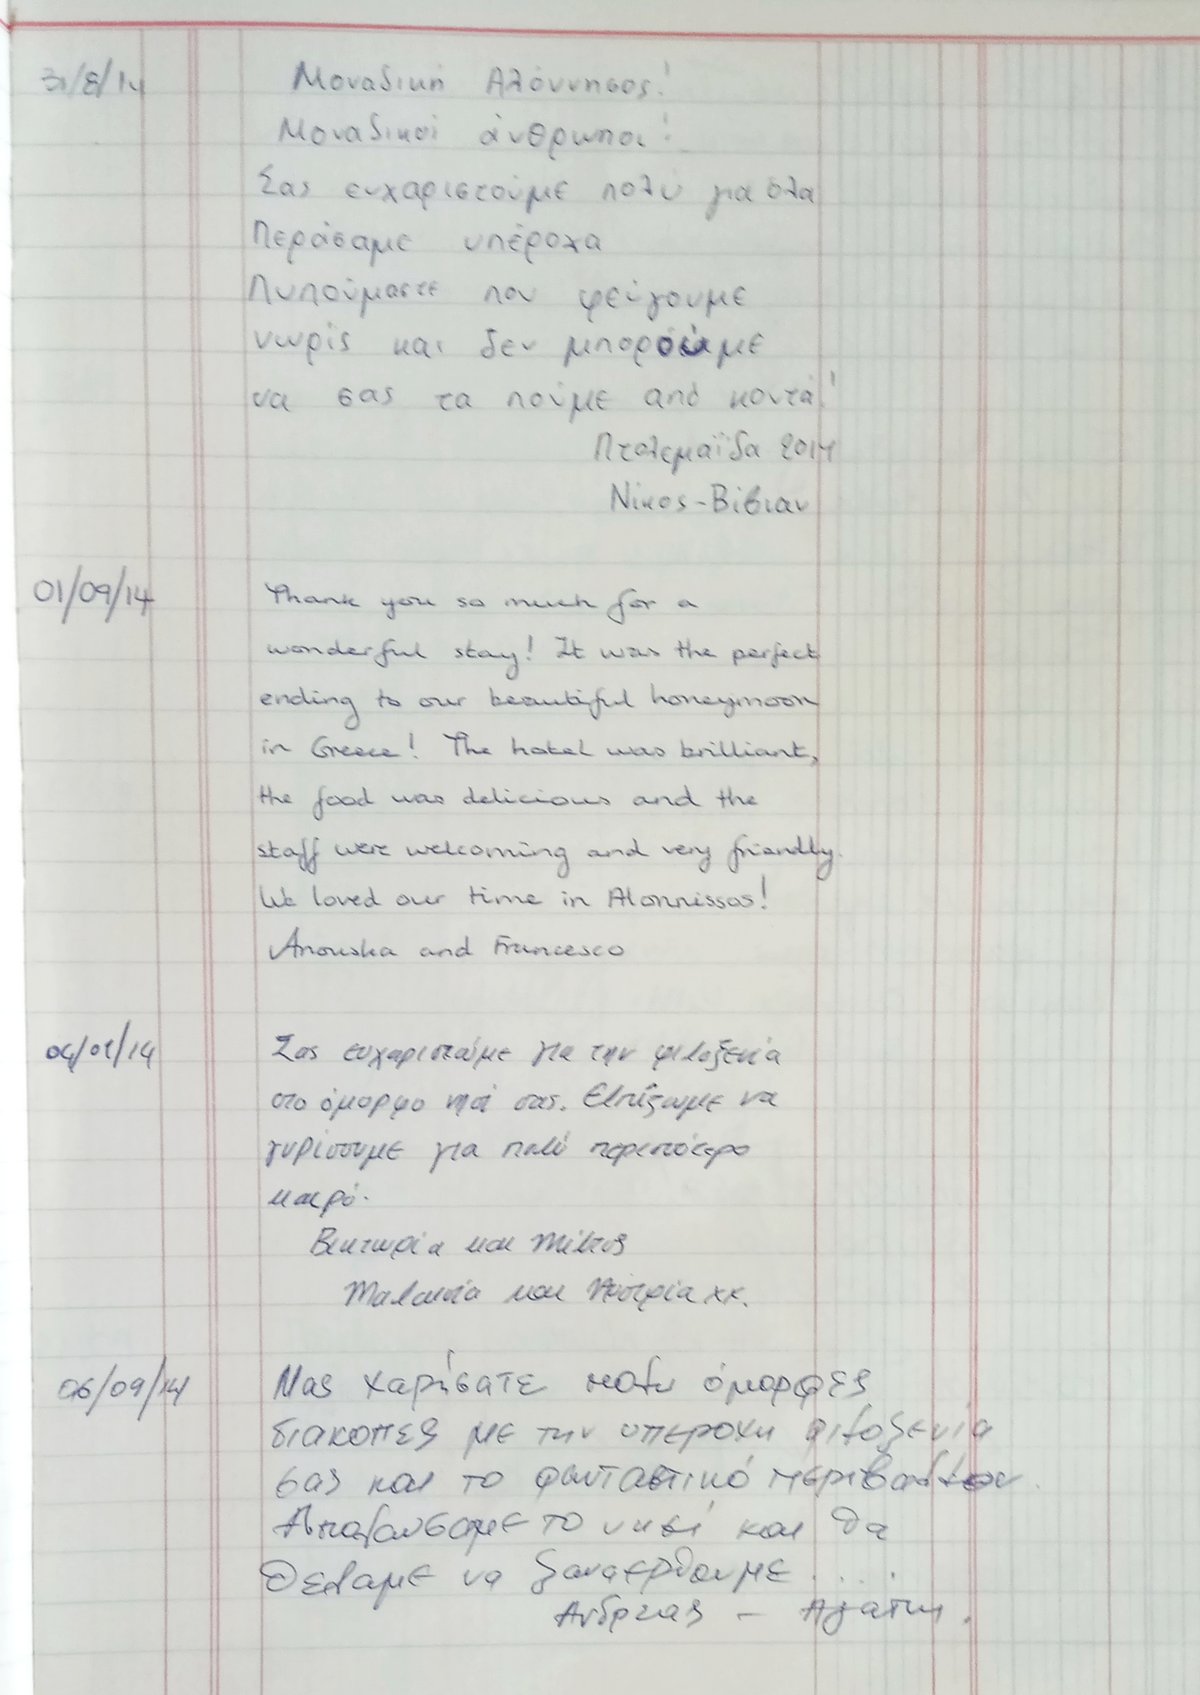 31/8/14 Μοναδική Αλόννησος!
Μοναδικοί άνθρωποι!
Σας ευχαριστούμε πολύ για όλα
Περάσαμε υπέροχα
Λυπούμαστε που φεύγουμε
νωρίς και δεν μπορούμε
να σας τα πούμε από κοντά!
Πτολεμαΐδα 2014
Νίκος-Βίβιαν
01/09/14 Thank you so much for a
wonderful stay! It was the perfect
ending to our beautiful honeymoon
in Greece! The hotel was brilliant,
the food was delicious and the
staff were welcoming and very friendly.
We loved our time in Alonnissos!
Anouska and Francesco
Σας ευχαριστούμε για την φιλοξενία
στο όμορφο νησί σας. Ελπίζωμε να
γυρίσουμε για πολύ περισσότερο
καιρό.
Βικτωρία και Μίλτος
Μαλαισία και Αυστρία xx.
06/09/14 Μας χαρήσατε πολυ όμορφες
διακοπες με την υπεροχη φιλοξενία
σας και το φανταστικό περιβαλλον.
Απολαυσαμε το νησί και θα
θελαμε να ξαναερθουμε.....
Ανδρεας - Αγάπη.